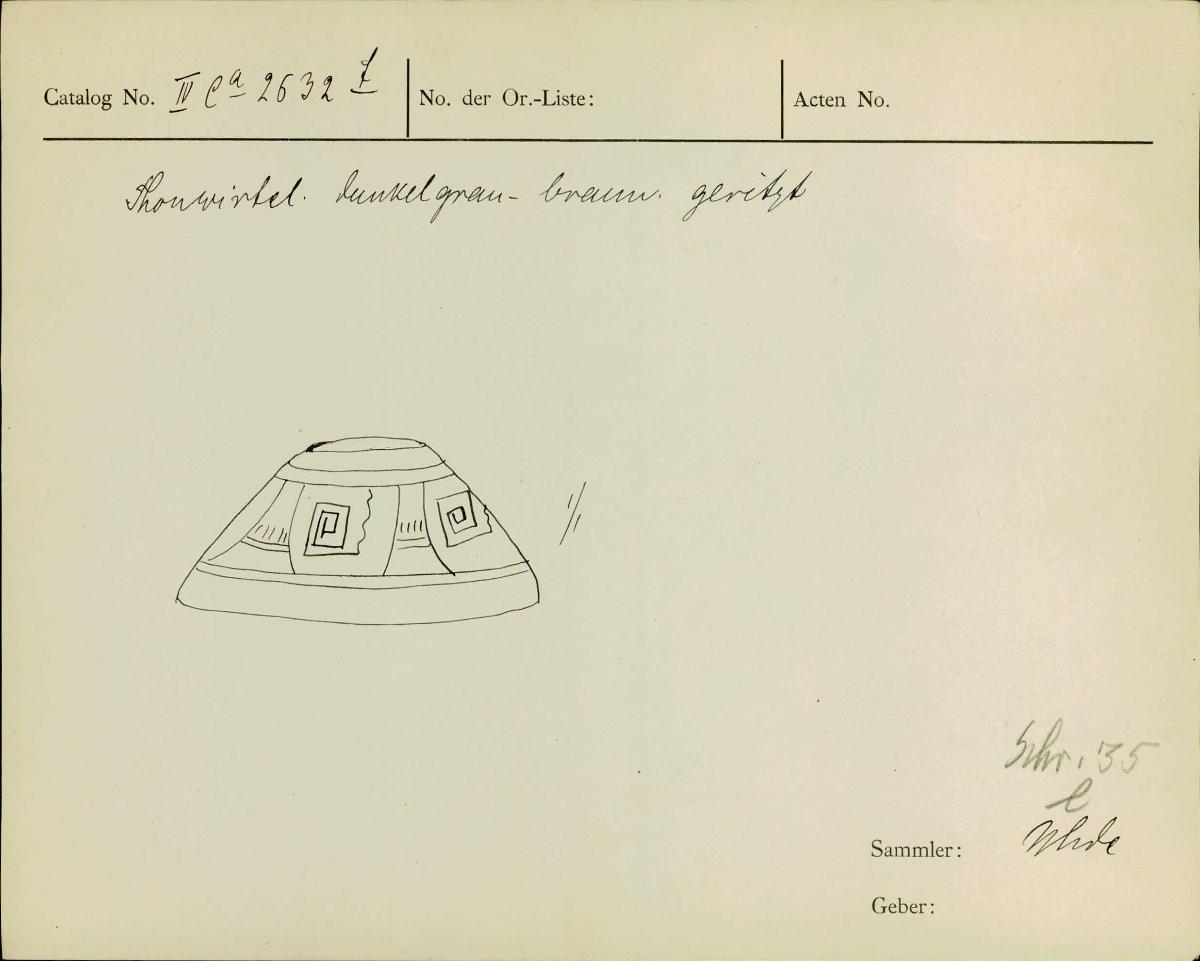 Catalog No. IV Ca 2632 f
No. der Or.-Liste:
Acten No.
Thonwirtel. dunkelgrau-braun. geritzt
1/1
Schr. 35
e
Sammler: Uhde
Geber: